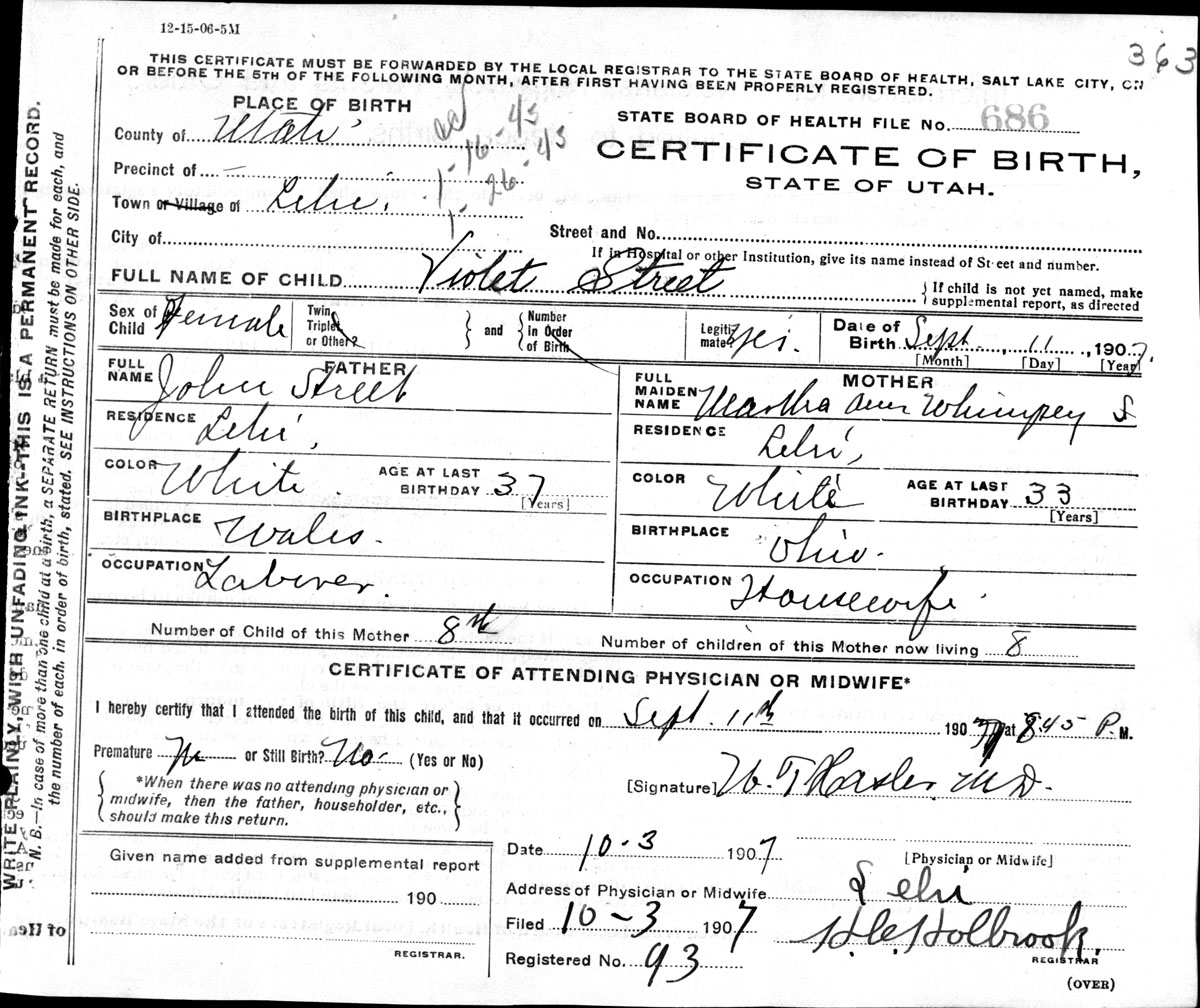 12-15-06-5M
363
THIS CERTIFICATE MUST BE FORWARDED BY THE LOCAL REGISTRAR TO THE STATE BOARD OF HEALTH, SALT LAKE CITY, ON
OR BEFORE THE 5TH OF THE FOLLOWING MONTH, AFTER FIRST HAVING BEEN PROPERLY REGISTERED.
PLACE OF BIRTH
County of Utah
Precinct of —
Town or Village of Lehi.
City of
1-16-43
1-26-43
STATE BOARD OF HEALTH FILE No. 686
CERTIFICATE OF BIRTH,
STATE OF UTAH.
Street and No.
If in Hospital or other Institution, give its name instead of Street and number.
FULL NAME OF CHILD Violet Street
If child is not yet named, make
supplemental report, as directed
Sex of Child Female
Twin, Triplet, or Other?
and
Number in Order of Birth
Legitimate? Yes.
Date of Birth Sept. 11, 1907.
[Month] [Day] [Year]
FATHER
FULL NAME John Street
RESIDENCE Lehi,
COLOR White
AGE AT LAST BIRTHDAY 37
[Years]
BIRTHPLACE Wales.
OCCUPATION Laborer.
MOTHER
FULL MAIDEN NAME Martha Ann Whimpey S
RESIDENCE Lehi,
COLOR White
AGE AT LAST BIRTHDAY 33
[Years]
BIRTHPLACE Ohio.
OCCUPATION Housewife.
Number of Child of this Mother 8th
Number of children of this Mother now living 8
CERTIFICATE OF ATTENDING PHYSICIAN OR MIDWIFE*
I hereby certify that I attended the birth of this child, and that it occurred on Sept. 11th 1907, at 8.45 P. M.
Premature No or Still Birth? No. (Yes or No)
*When there was no attending physician or
midwife, then the father, householder, etc.,
should make this return.
[Signature] M.D.
[Physician or Midwife]
Given name added from supplemental report
190
REGISTRAR.
Date 10-3 1907
Address of Physician or Midwife Lehi
Filed 10-3 1907 Holbrook.
REGISTRAR
Registered No. 93
(OVER)
WRITE PLAINLY, WITH UNFADING INK—THIS IS A PERMANENT RECORD.
N. B.—In case of more than one child at a birth, a SEPARATE RETURN must be made for each, and
the number of each, in order of birth, stated. SEE INSTRUCTIONS ON OTHER SIDE.